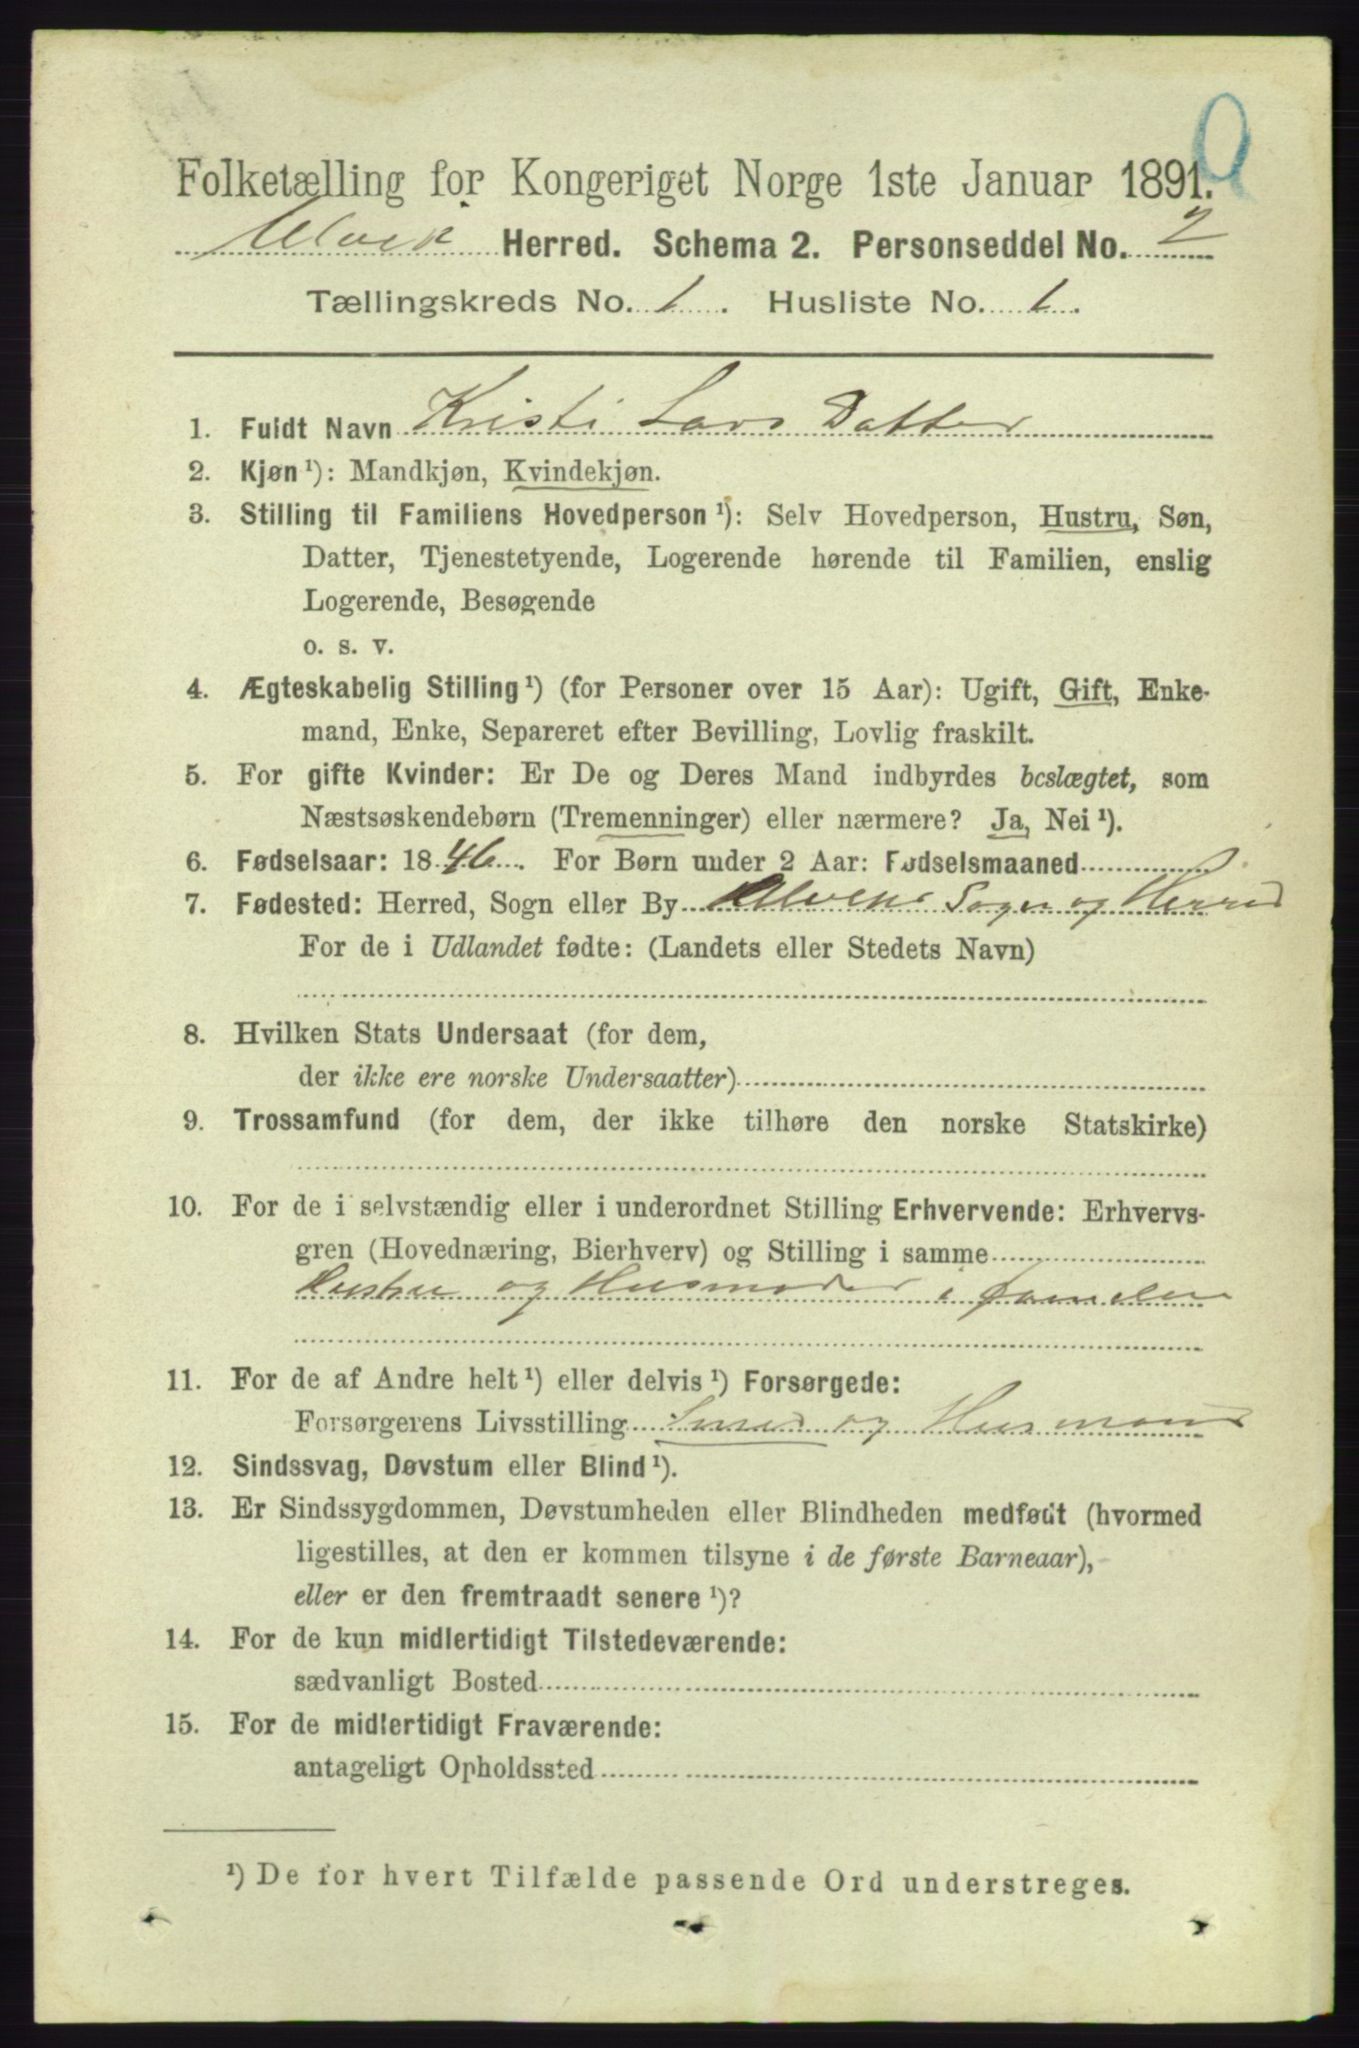 Folketælling for Kongeriget Norge 1ste Januar 1891.
Ulvik Herred. Schema 2. Personseddel No. 2
Tællingskreds No. 1. Husliste No. 1.
1. Fuldt Navn Kristi Lars Datter
2. Kjøn ¹): Mandkjøn, Kvindekjøn.
3. Stilling til Familiens Hovedperson ¹): Selv Hovedperson, Hustru, Søn,
Datter, Tjenestetyende, Logerende hørende til Familien, enslig
Logerende, Besøgende
o. s. v.
4. Ægteskabelig Stilling ¹) (for Personer over 15 Aar): Ugift, Gift, Enke-
mand, Enke, Separeret efter Bevilling, Lovlig fraskilt.
5. For gifte Kvinder: Er De og Deres Mand indbyrdes beslægtet, som
Næstsøskendebørn (Tremenninger) eller nærmere? Ja, Nei ¹).
6. Fødselsaar: 1846. For Børn under 2 Aar: Fødselsmaaned
7. Fødested: Herred, Sogn eller By Ulviks Sogn og Herred
For de i Udlandet fødte: (Landets eller Stedets Navn)
8. Hvilken Stats Undersaat (for dem,
der ikke ere norske Undersaatter)
9. Trossamfund (for dem, der ikke tilhøre den norske Statskirke)
10. For de i selvstændig eller i underordnet Stilling Erhvervende: Erhvervs-
gren (Hovednæring, Bierhverv) og Stilling i samme
Hustru og Husmoder i
11. For de af Andre helt ¹) eller delvis ¹) Forsørgede:
Forsørgerens Livsstilling Smed og Husmand
12. Sindssvag, Døvstum eller Blind ¹).
13. Er Sindssygdommen, Døvstumheden eller Blindheden medfødt (hvormed
ligestilles, at den er kommen tilsyne i de første Barneaar),
eller er den fremtraadt senere ¹)?
14. For de kun midlertidigt Tilstedeværende:
sædvanligt Bosted
15. For de midlertidigt Fraværende:
antageligt Opholdssted
¹) De for hvert Tilfælde passende Ord understreges.